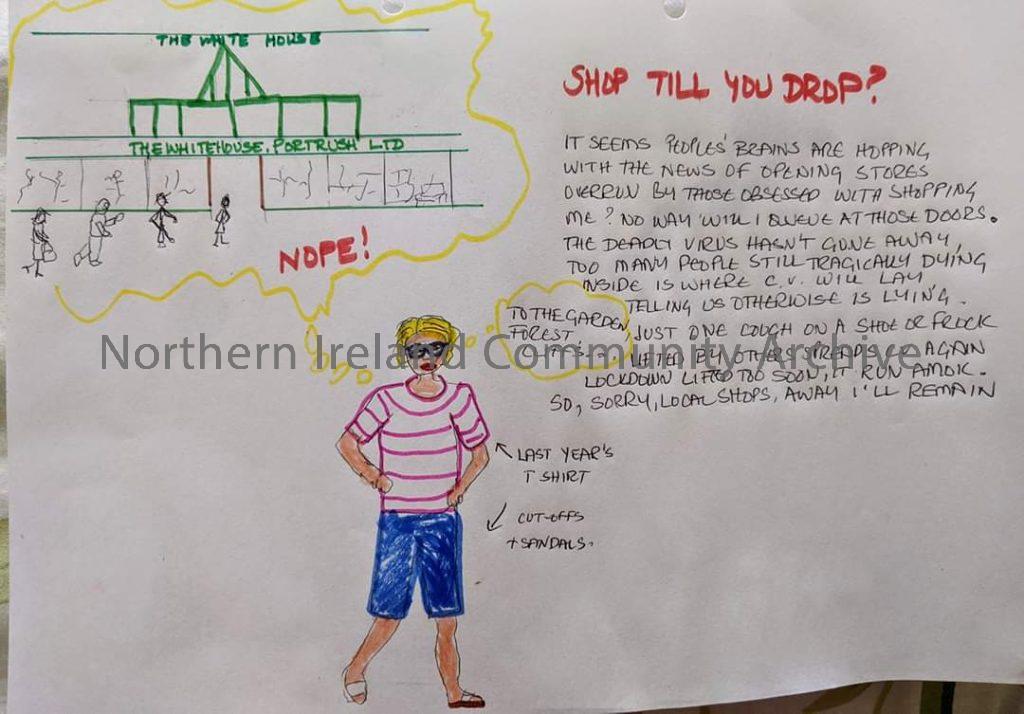 THE WHITE HOUSE
THE WHITEHOUSE, PORTRUSH LTD
NOPE!
SHOP TILL YOU DROP?
IT SEEMS PEOPLES' BRAINS ARE HOPPING
WITH THE NEWS OF OPENING STORES
OVERRUN BY THOSE OBSESSED WITH SHOPPING
ME? NO WAY WILL I QUEUE AT THOSE DOORS.
THE DEADLY VIRUS HASN'T GONE AWAY,
TOO MANY PEOPLE STILL TRAGICALLY DYING
INSIDE IS WHERE C.V. WILL LAY
TELLING US OTHERWISE IS LYING.
JUST ONE COUGH ON A SHOE OR FROCK
LIFTED BY OTHERS, SPREAD AGAIN
LOCKDOWN LIFTED TOO SOON, IT RUN AMOK.
SO, SORRY, LOCAL SHOPS, AWAY I'LL REMAIN
TO THE GARDEN
FOREST
Northern Ireland Community Archive
LAST YEAR'S
T SHIRT
CUT-OFFS
+ SANDALS.